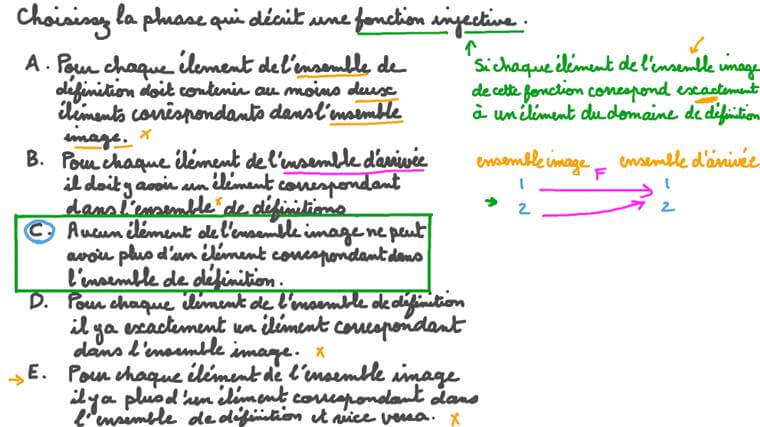 Choisissez la phrase qui décrit une fonction injective.
A. Pour chaque élement de l'ensemble de
définition doit contenir au moins deux
éléments correspondants dans l'ensemble
image. x
B. Pour chaque élément de l'ensemble d'arrivée
il doit y avoir un élément correspondant
dans l'ensemble x de définitions
C. Aucun élément de l'ensemble image ne peut
avoir plus d'un élément correspondant dans
l'ensemble de définition.
D. Pour chaque élément de l'ensemble de définition
il y a exactement un élément correspondant
dans l'ensemble image. x
E. Pour chaque élément de l'ensemble image
il y a plus d'un élément correspondant dans
l'ensemble de définition et vice versa. x
Si chaque élément de l'ensemble image
de cette fonction correspond exactement
à un élément du domaine de définition
ensemble image ensemble d'arrivée
F
1 1
2 2